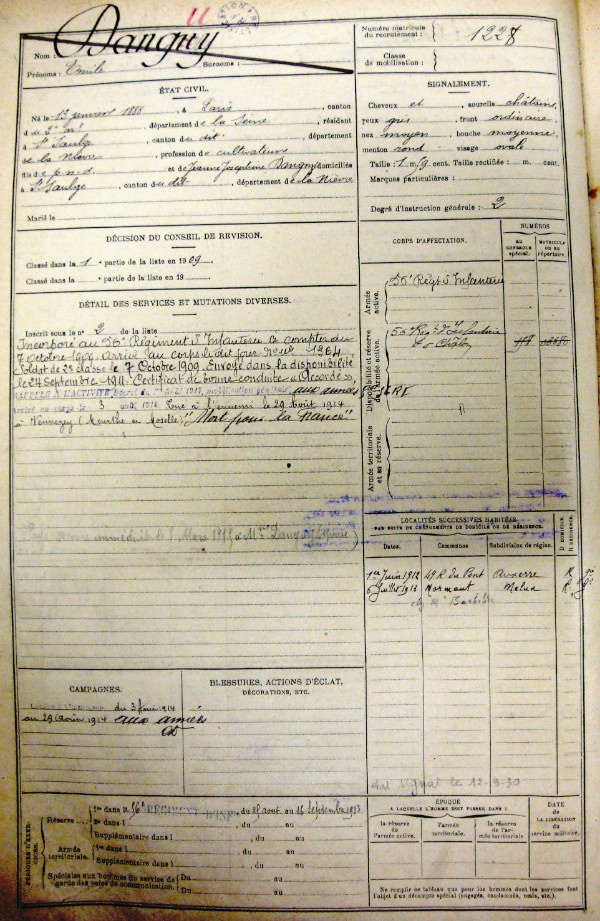 11
Nom : Danguy
Prénoms : Emile Surnoms :
Numéro matricule du recrutement : 1227
Classe de mobilisation :
ÉTAT CIVIL.
Né le 13 janvier 1888, à Paris, canton
d, département de la Seine, résident
à St Saulge, canton du dit, département
de la Nièvre, profession de cultivateur
fils de p. n. d. et de Jeanne Josephine Danguy domiciliés
à St Saulge, canton du dit, département de la Nièvre
Marié le
SIGNALEMENT.
Cheveux et, sourcils châtains
yeux gris, front ordinaire
nez moyen, bouche moyenne
menton rond visage ovale
Taille : 1 m. cent. Taille rectifiée : m. cent.
Marques particulières :
Degré d'instruction générale : 2
DÉCISION DU CONSEIL DE REVISION.
Classé dans la 1e partie de la liste en 1909
Classé dans la e partie de la liste en 19
DÉTAIL DES SERVICES ET MUTATIONS DIVERSES.
Inscrit sous le n° 2 de la liste
Incorporé au 56e Régiment d'Infanterie à compter du
7 octobre 1909. Arrivé au corps le dit jour 1264
Soldat de 2e classe le 7 Octobre 1909. Envoyé dans la disponibilité
le 24 Septembre 1911. Certificat de bonne conduite "Accordé".
RAPPELÉ À L'ACTIVITÉ Décret du 1er août 1914, mobilisation générale, aux armées
arrivé au corps le 3 août 1914. Tué à l'ennemi le 29 août 1914
à Vennezey (Meurthe et Moselle) "Mort pour la France"
CORPS D'AFFECTATION.
NUMÉROS
AU CONTROLE SPÉCIAL.
MATRICULE OU AU RÉPERTOIRE.
Armée active.
56e Régt d'Infanterie
Disponibilité et réserve de l'armée active.
56e Régt d'Infanterie
Armée territoriale et sa réserve.
LOCALITÉS SUCCESSIVES HABITÉES
PAR SUITE DE CHANGEMENTS DE DOMICILE OU DE RÉSIDENCE.
Dates. Communes Subdivision de région. D DOMICILE. R RÉSIDENCE.
1er Juin 1912 49 R. du Pont Auxerre R
6 Juillet 1913 Mormant Melun R
CAMPAGNES.
du 3 Août 1914
au 29 Août 1914 aux armées
BLESSURES, ACTIONS D'ÉCLAT,
DÉCORATIONS, ETC.
PÉRIODES D'EXERCICES.
Réserve
1re dans le 56e RÉGIMENT D'INF, du 25 aout au 16 Septembre 1913
2e dans l, du au
Supplémentaire dans l, du au
Armée territoriale.
1re dans l, du au
Supplémentaire dans l, du au
Spéciales aux hommes du service de garde des voies de communication.
Du au
Du au
ÉPOQUE
A LAQUELLE L'HOMME DOIT PASSER DANS :
la réserve de l'armée active.
l'armée territoriale.
la réserve de l'armée territoriale.
DATE DE LA LIBÉRATION du service militaire.
Ne remplir ce tableau que pour les hommes dont les services font
l'objet d'un décompte spécial (engagés, condamnés, omis, etc.)